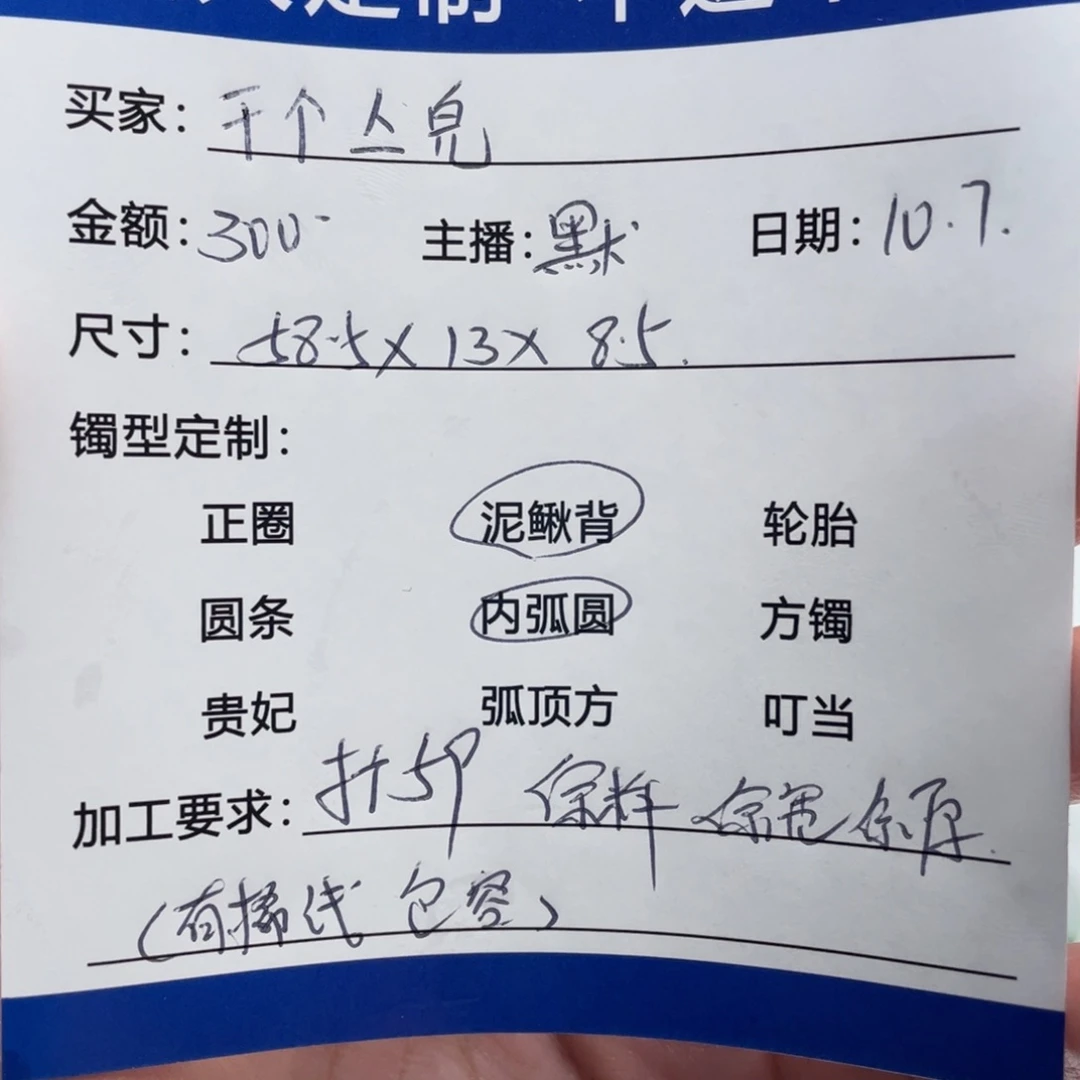 买家：干个亼皃
金额：300- 主播：默 日期：10.7.
尺寸：58.5×13×8.5.
镯型定制：
正圈 泥鳅背 轮胎
圆条 内弧圆 方镯
贵妃 弧顶方 叮当
加工要求：打 保料
（有 线 包容）